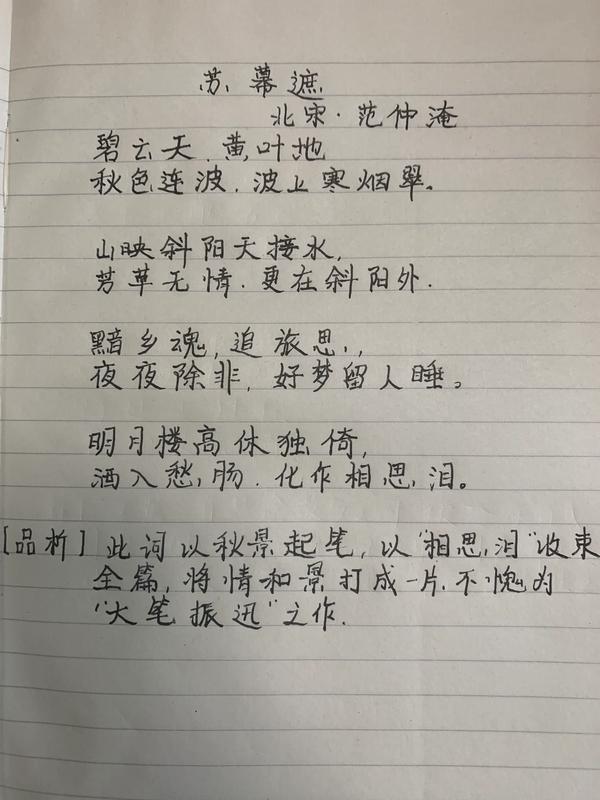 苏幕遮
北宋·范仲淹
碧云天,黄叶地
秋色连波,波上寒烟翠。
山映斜阳天接水,
芳草无情,更在斜阳外.
黯乡魂,追旅思,,
夜夜除非,好梦留人睡。
明月楼高休独倚,
酒入愁肠.化作相思泪。
[品析] 此词以秋景起笔,以“相思泪”收束
全篇,将情和景打成一片.不愧为
“大笔振迅”之作.